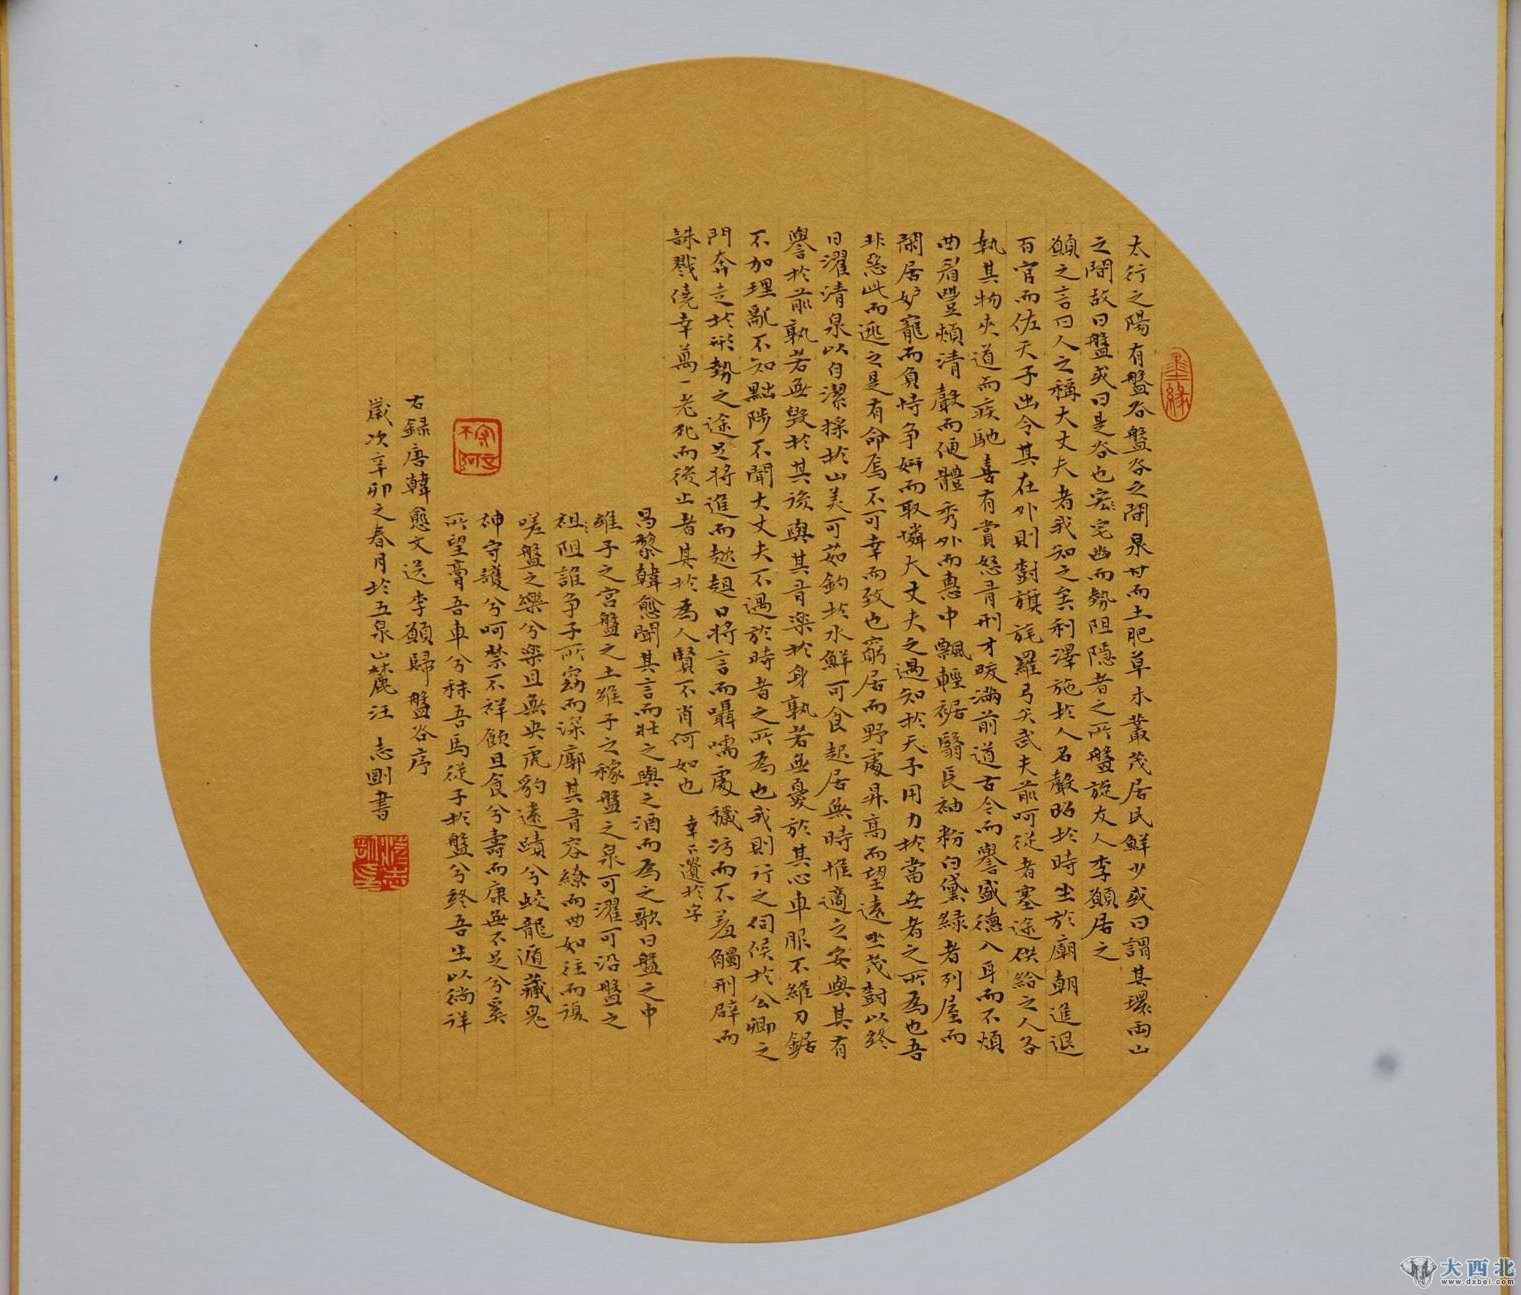 墨緣
太行之陽有盤谷盤谷之間泉甘而土肥草木叢茂居民鮮少或曰謂其環兩山
之間故曰盤或曰是谷也宏宅幽而勢阻隱者之所盤旋友人李願居之
願之言曰人之稱大丈夫者我知之矣利澤施於人名聲昭於時坐於廟朝進退
百官而佐天子出令其在外則樹旗旄羅弓矢武夫前呵從者塞途供給之人各
執其物夾道而疾馳喜有賞怒有刑才畯滿前道古今而譽盛德入耳而不煩
曲眉豐頰清聲而便體秀外而惠中飄輕裾翳長袖粉白黛綠者列屋而
閑居妒寵而負恃爭妍而取憐大丈夫之遇知於天子用力於當世者之所為也吾
非惡此而逃之是有命焉不可幸而致也窮居而野處昇高而望遠坐茂樹以終
日濯清泉以自潔採於山美可茹釣於水鮮可食起居無時惟適之安與其有
譽於前孰若無毀於其後與其有樂於身孰若無憂於其心車服不維刀鋸
不加理亂不知黜陟不聞大丈夫不遇於時者之所為也我則行之伺候於公卿之
門奔走於形勢之途足將進而趑趄口將言而囁嚅處穢污而不羞觸刑辟而
誅戮僥幸萬一老死而後止者其於為人賢不肖何如也 幸下遺於字
昌黎韓愈聞其言而壯之與之酒而為之歌曰盤之中
維子之宮盤之土維子之稼盤之泉可濯可沿盤之
祖阻誰爭子所窈而深廓其有容繚而曲如往而復
嗟盤之樂兮樂且無央虎豹遠蹟兮蛟龍遁藏鬼
神守護兮呵禁不祥飲且食兮壽而康無不足兮奚
所望膏吾車兮秣吾馬從子於盤兮終吾生以徜徉
右録唐韓愈文送李願歸盤谷序
歲次辛卯之春月於五泉山麓汪志剛書
大西北
www.dxbei.com